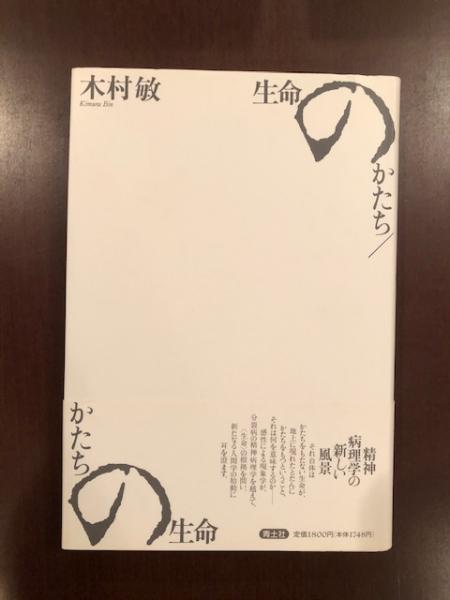 木村敏
Kimura Bin
生命の
かたち／
かたちの
生命
精神
病理学の
新しい
風景
それ自体は
かたちをもたない生命が、
地上に現れたとたんに
かたちをもつということ、
それは何を意味するのか――
感性による現象学が、
分裂病の精神病理学を越えて、
〈生命〉の根拠を問い、
新たなる人間学の胎動に
耳を澄ます。
青土社
定価1800円(本体1748円)